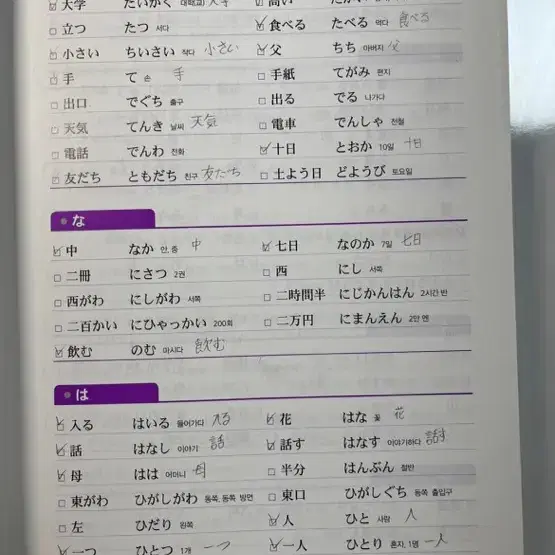 大学 だいがく 대학(교) 大学
立つ たつ 서다
食べる たべる 먹다 食べる
小さい ちいさい 작다 小さい
父 ちち 아버지 父
手 て 손 手
手紙 てがみ 편지
出口 でぐち 출구
出る でる 나가다
天気 てんき 날씨 天気
電車 でんしゃ 전철
電話 でんわ 전화
十日 とおか 10일 十日
友だち ともだち 친구 友だち
土よう日 どようび 토요일
な
中 なか 안, 중 中
七日 なのか 7일 七日
二冊 にさつ 2권
西 にし 서쪽
西がわ にしがわ 서쪽
二時間半 にじかんはん 2시간 반
二百かい にひゃっかい 200회
二万円 にまんえん 2만 엔
飲む のむ 마시다 飲む
は
入る はいる 들어가다 入る
花 はな 꽃 花
話 はなし 이야기 話
話す はなす 이야기하다 話す
母 はは 어머니 母
半分 はんぶん 절반
東がわ ひがしがわ 동쪽, 동쪽 방면
東口 ひがしぐち 동쪽 출입구
左 ひだり 왼쪽
人 ひと 사람 人
一つ ひとつ 1개 一つ
一人 ひとり 혼자, 1명 一人